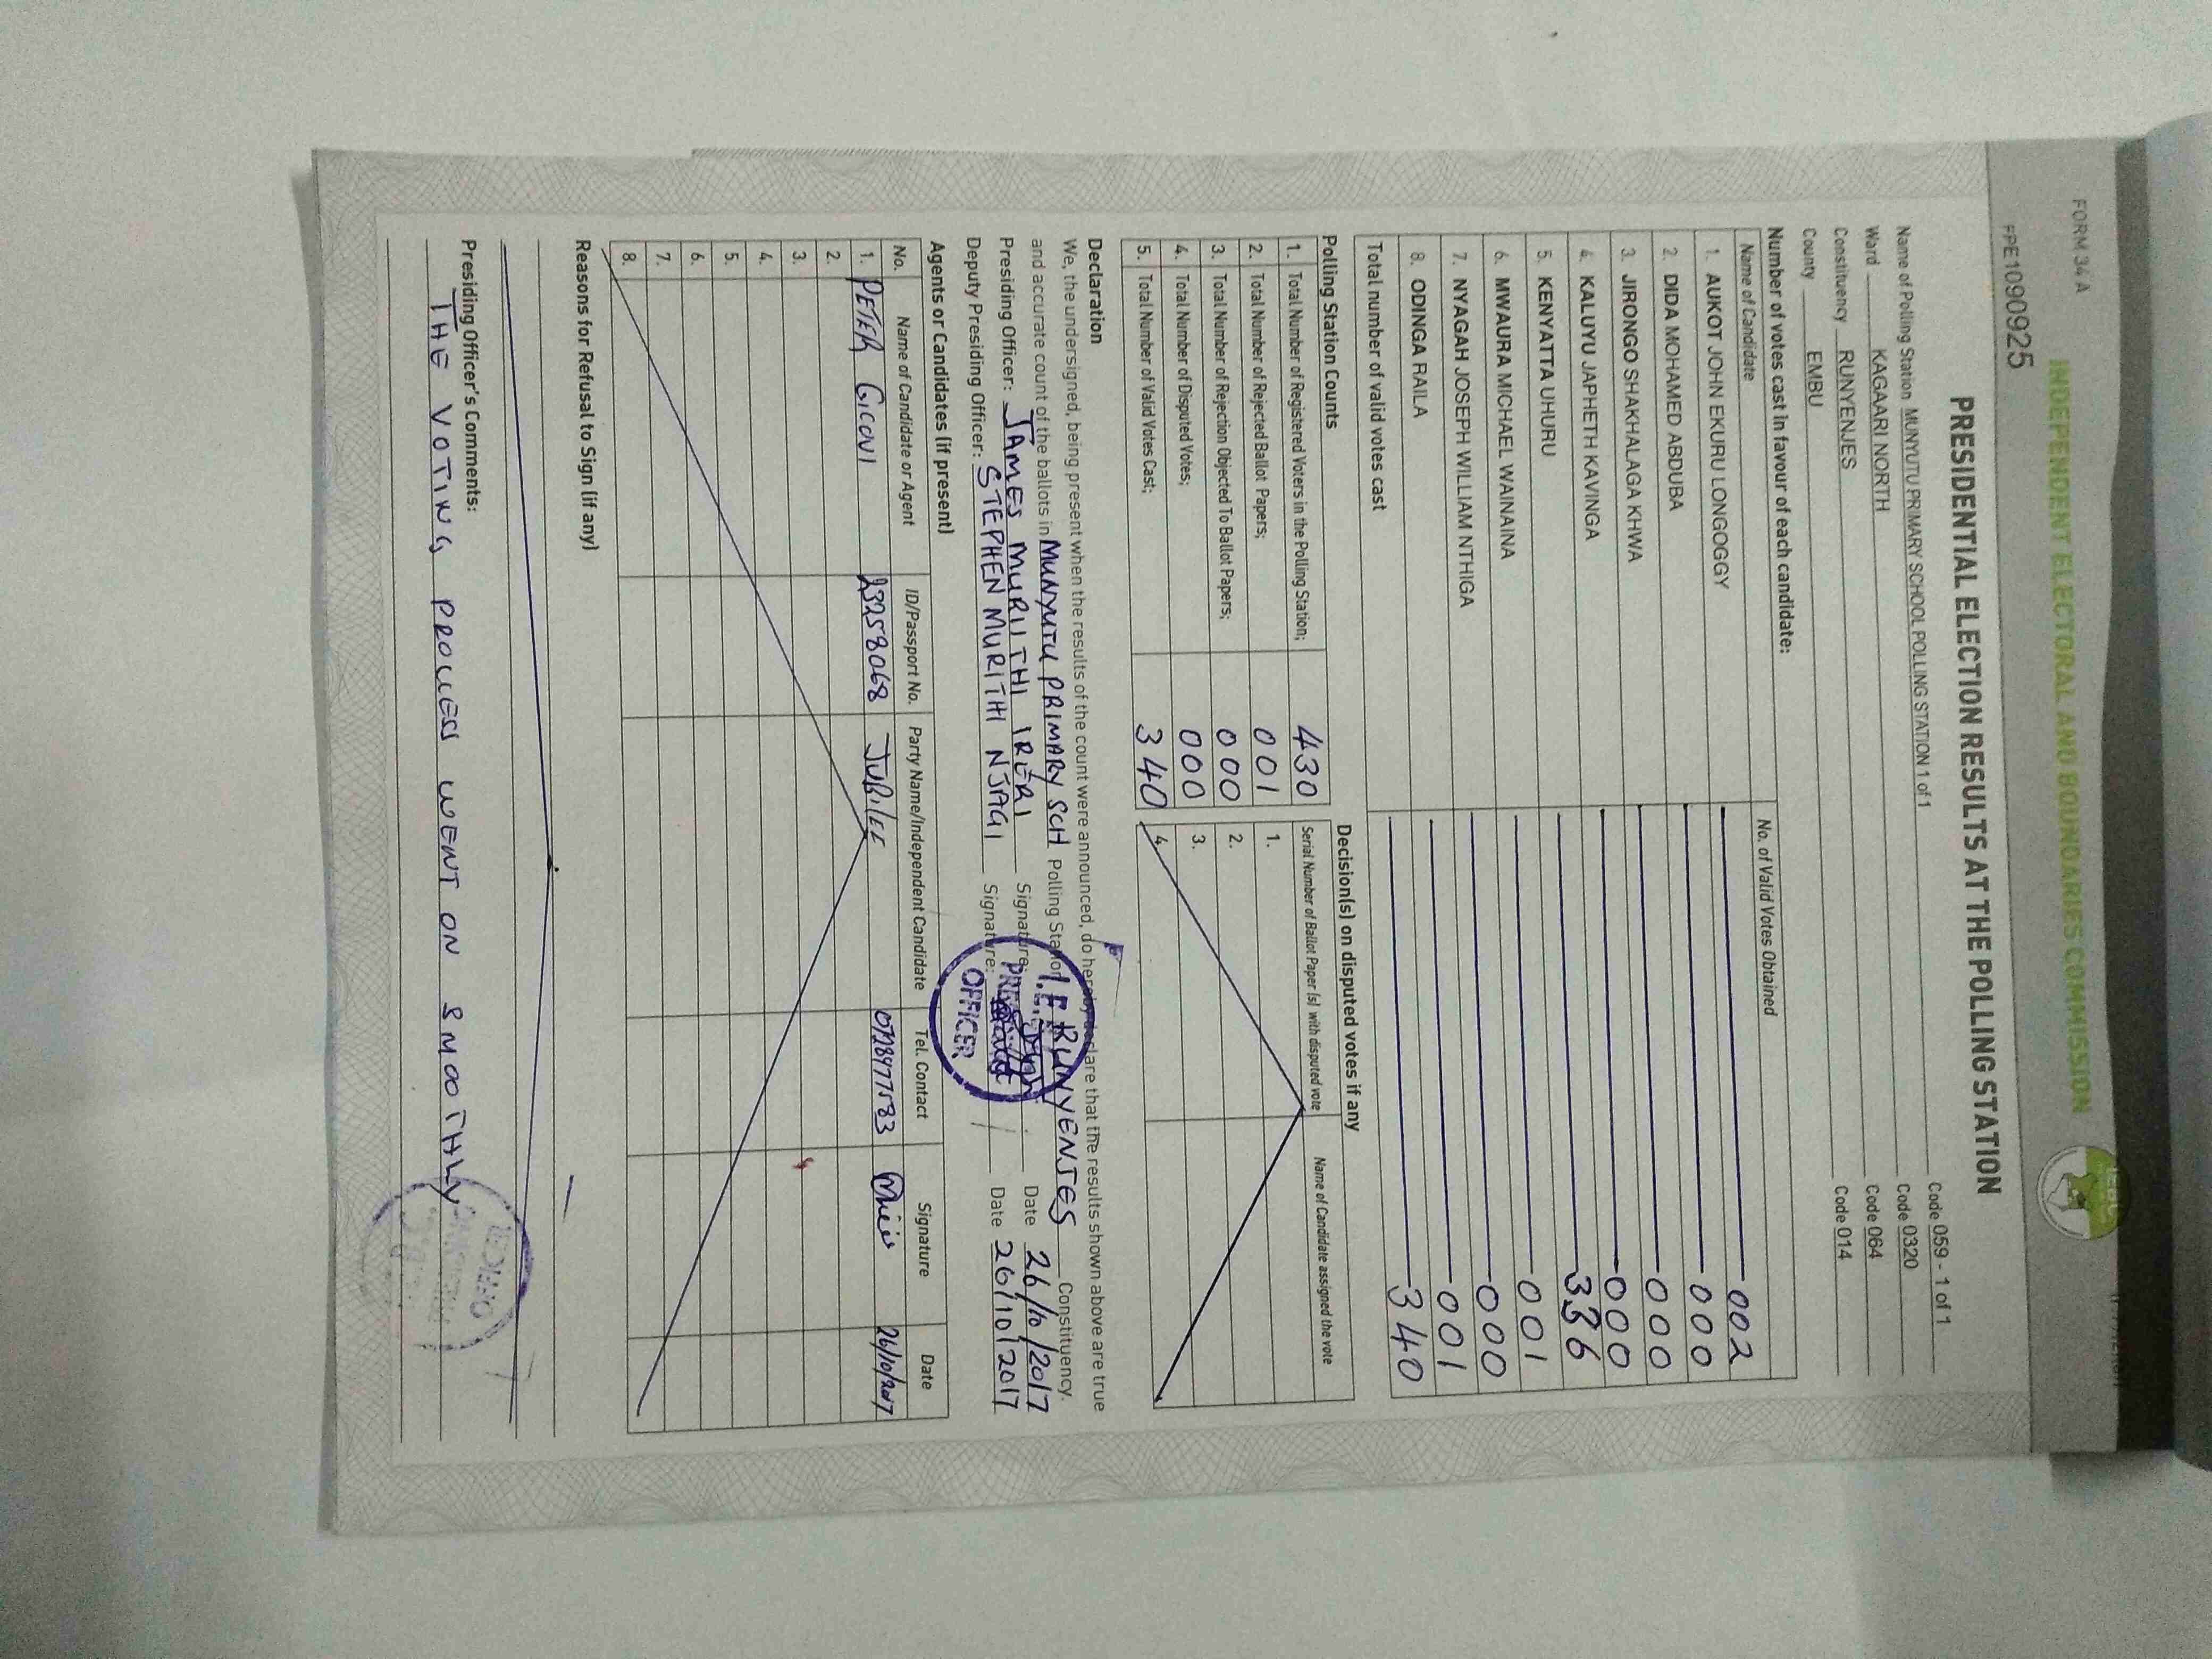 FORM 34A
INDEPENDENT ELECTORAL AND BOUNDARIES COMMISSION
PPE1090925
PRESIDENTIAL ELECTION RESULTS AT THE POLLING STATION
Name of Polling Station MUNYUTU PRIMARY SCHOOL POLLING STATION 1 of 1 Code 059 - 1 of 1
Ward KAGAARI NORTH Code 0320
Constituency RUNYENJES Code 064
County EMBU Code 014
Number of votes cast in favour of each candidate:
Name of Candidate No. of Valid Votes Obtained
1. AUKOT JOHN EKURU LONGOGGY 002
2. DIDA MOHAMED ABDUBA 000
3. JIRONGO SHAKHALAGA KHWA 000
4. KALUYU JAPHETH KAVINGA 000
5. KENYATTA UHURU 336
6. MWAURA MICHAEL WAINAINA 001
7. NYAGAH JOSEPH WILLIAM NTHIGA 000
8. ODINGA RAILA 001
Total number of valid votes cast 340
Polling Station Counts
1. Total Number of Registered Voters in the Polling Station; 430
2. Total Number of Rejected Ballot Papers; 001
3. Total Number of Rejection Objected To Ballot Papers; 000
4. Total Number of Disputed Votes; 000
5. Total Number of Valid Votes Cast; 340
Decision(s) on disputed votes if any
Serial Number of Ballot Paper (s) with disputed vote Name of Candidate assigned the vote
1.
2.
3.
4.
Declaration
We, the undersigned, being present when the results of the count were announced, do hereby declare that the results shown above are true
and accurate count of the ballots in MUNYUTU PRIMARY SCH Polling Station RUNYENJES Constituency.
Presiding Officer: JAMES MURUTHI IRERI Signature: Date 26/10/2017
Deputy Presiding Officer: STEPHEN MURITHI NJAGI Signature: Date 26/10/2017
OFFICER
Agents or Candidates (if present)
No. Name of Candidate or Agent ID/Passport No. Party Name/Independent Candidate Tel. Contact Signature Date
1. PETER GICOVI 23258068 JUBILEE 0728977583 26/10/2017
2.
3.
4.
5.
6.
7.
8.
Reasons for Refusal to Sign (if any)
Presiding Officer's Comments:
THE VOTING PROCESS WENT ON SMOOTHLY